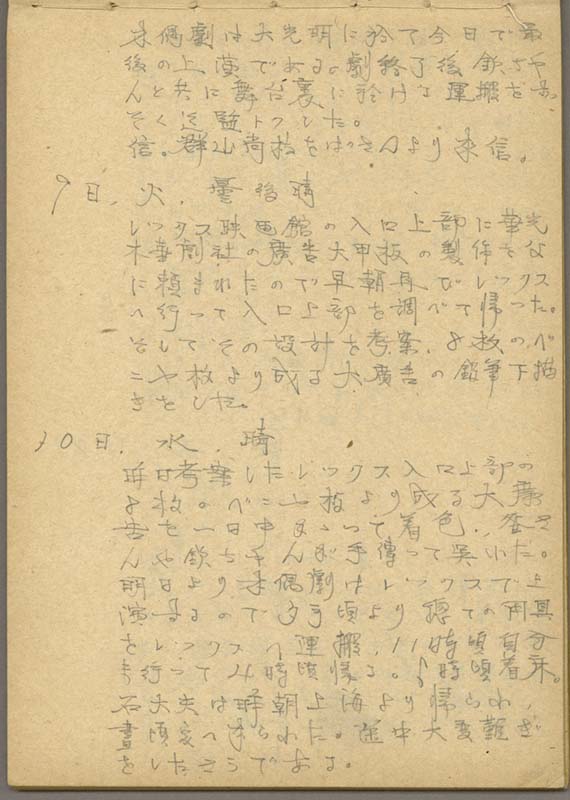 木偶劇は大光明に於て今日で最
後の上演である。劇終了後鉄ちや
んと共に舞台裏に於ける運搬を
そく迄監トクした。
信。群山尚枝をばさんより来信。
9日，火，曇後晴
レックス映画館の入口上部に華光
木华劇社の廣告大甲板の製作を父
に頼まれたので早朝再びレックス
へ行って入口上部を調べて帰った。
そしてその設計を考案，8枚のベ
ニヤ板より成る大廣告の鉛筆下描
きをした。
10日，水，晴
昨日考案したレックス入口上部の
8枚。ベニヤ板より成る大廣
告を一日中かゝって着色，
んや鉄ちやんが手傳って呉れた。
明日より木偶劇はレックスで上
演するので夕ヨ頃より總ての用具
をレックスへ運搬，11時頃自分
も行って24時頃帰る。
石大夫は昨朝上海より帰られ，
晝頃家へ来られた。途中大変難ぎ
をしたそうである。